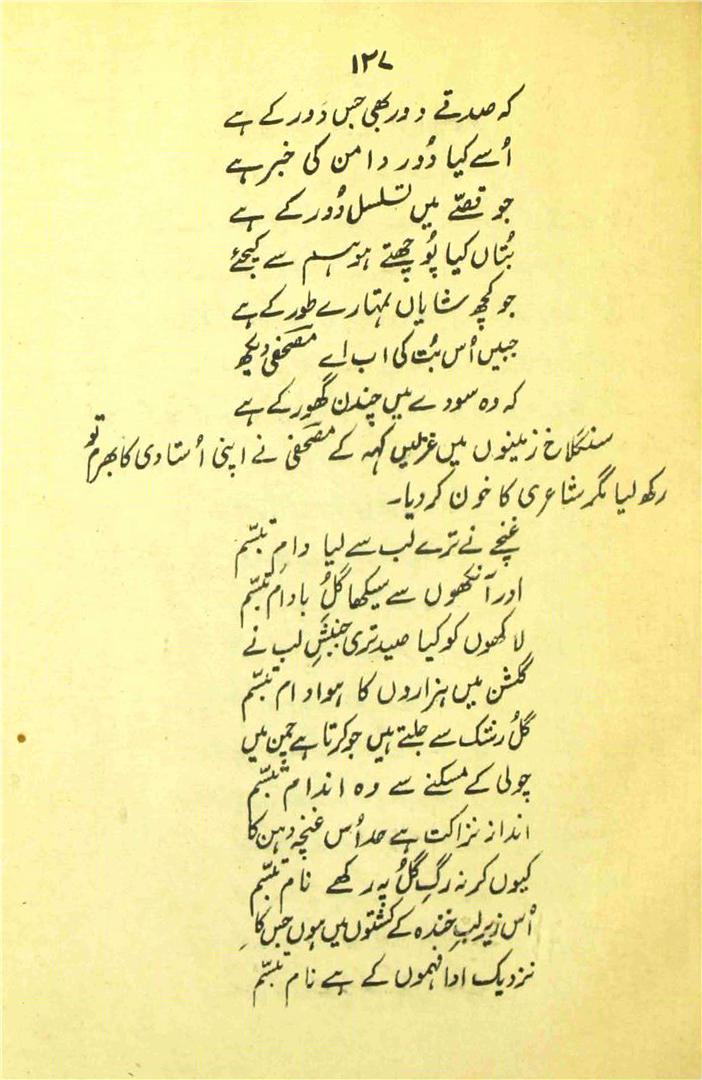 ۱۳۷
کہ صدقے دور بھی جس دَور کے ہے
اُسے کیا دُور دامن کی خبر ہے
جو قصّے میں تسلسل دُور کے ہے
بُتاں کیا پُوچھتے ہو ہم سے کیجئے
جو کچھ شایاں تمہارے طور کے ہے
جبیں اُس بُت کی اب اے مصحفی دیکھ
کہ وہ سودے میں چندن گھور کے ہے
سنگلاخ زمینوں میں غزلیں کہہ کے مصحفی نے اپنی اُستادی کا بھرم تو
رکھ لیا مگر شاعری کا خون کر دیا۔
غنچے نے ترے لب سے لیا دامِ تبسّم
اور آنکھوں سے سیکھا گلُ بادام تبسّم
لاکھوں کو کیا صید تری جنبشِ لب نے
گلشن میں ہزاروں کا ہوا دام تبسّم
گلُ رشک سے جلتے ہیں جو کرتا ہے چمن میں
چولی کے مسکنے سے وہ اندام تبسّم
انداز نزاکت ہے حد اُس غنچہ دہن کا
کیوں کر نہ رگِ گلُ پہ رکھے نام تبسّم
اُس زیرِ لبِ خندہ کے کشتوں میں ہوں جس کا
نزدیک ادا فہموں کے ہے نام تبسّم